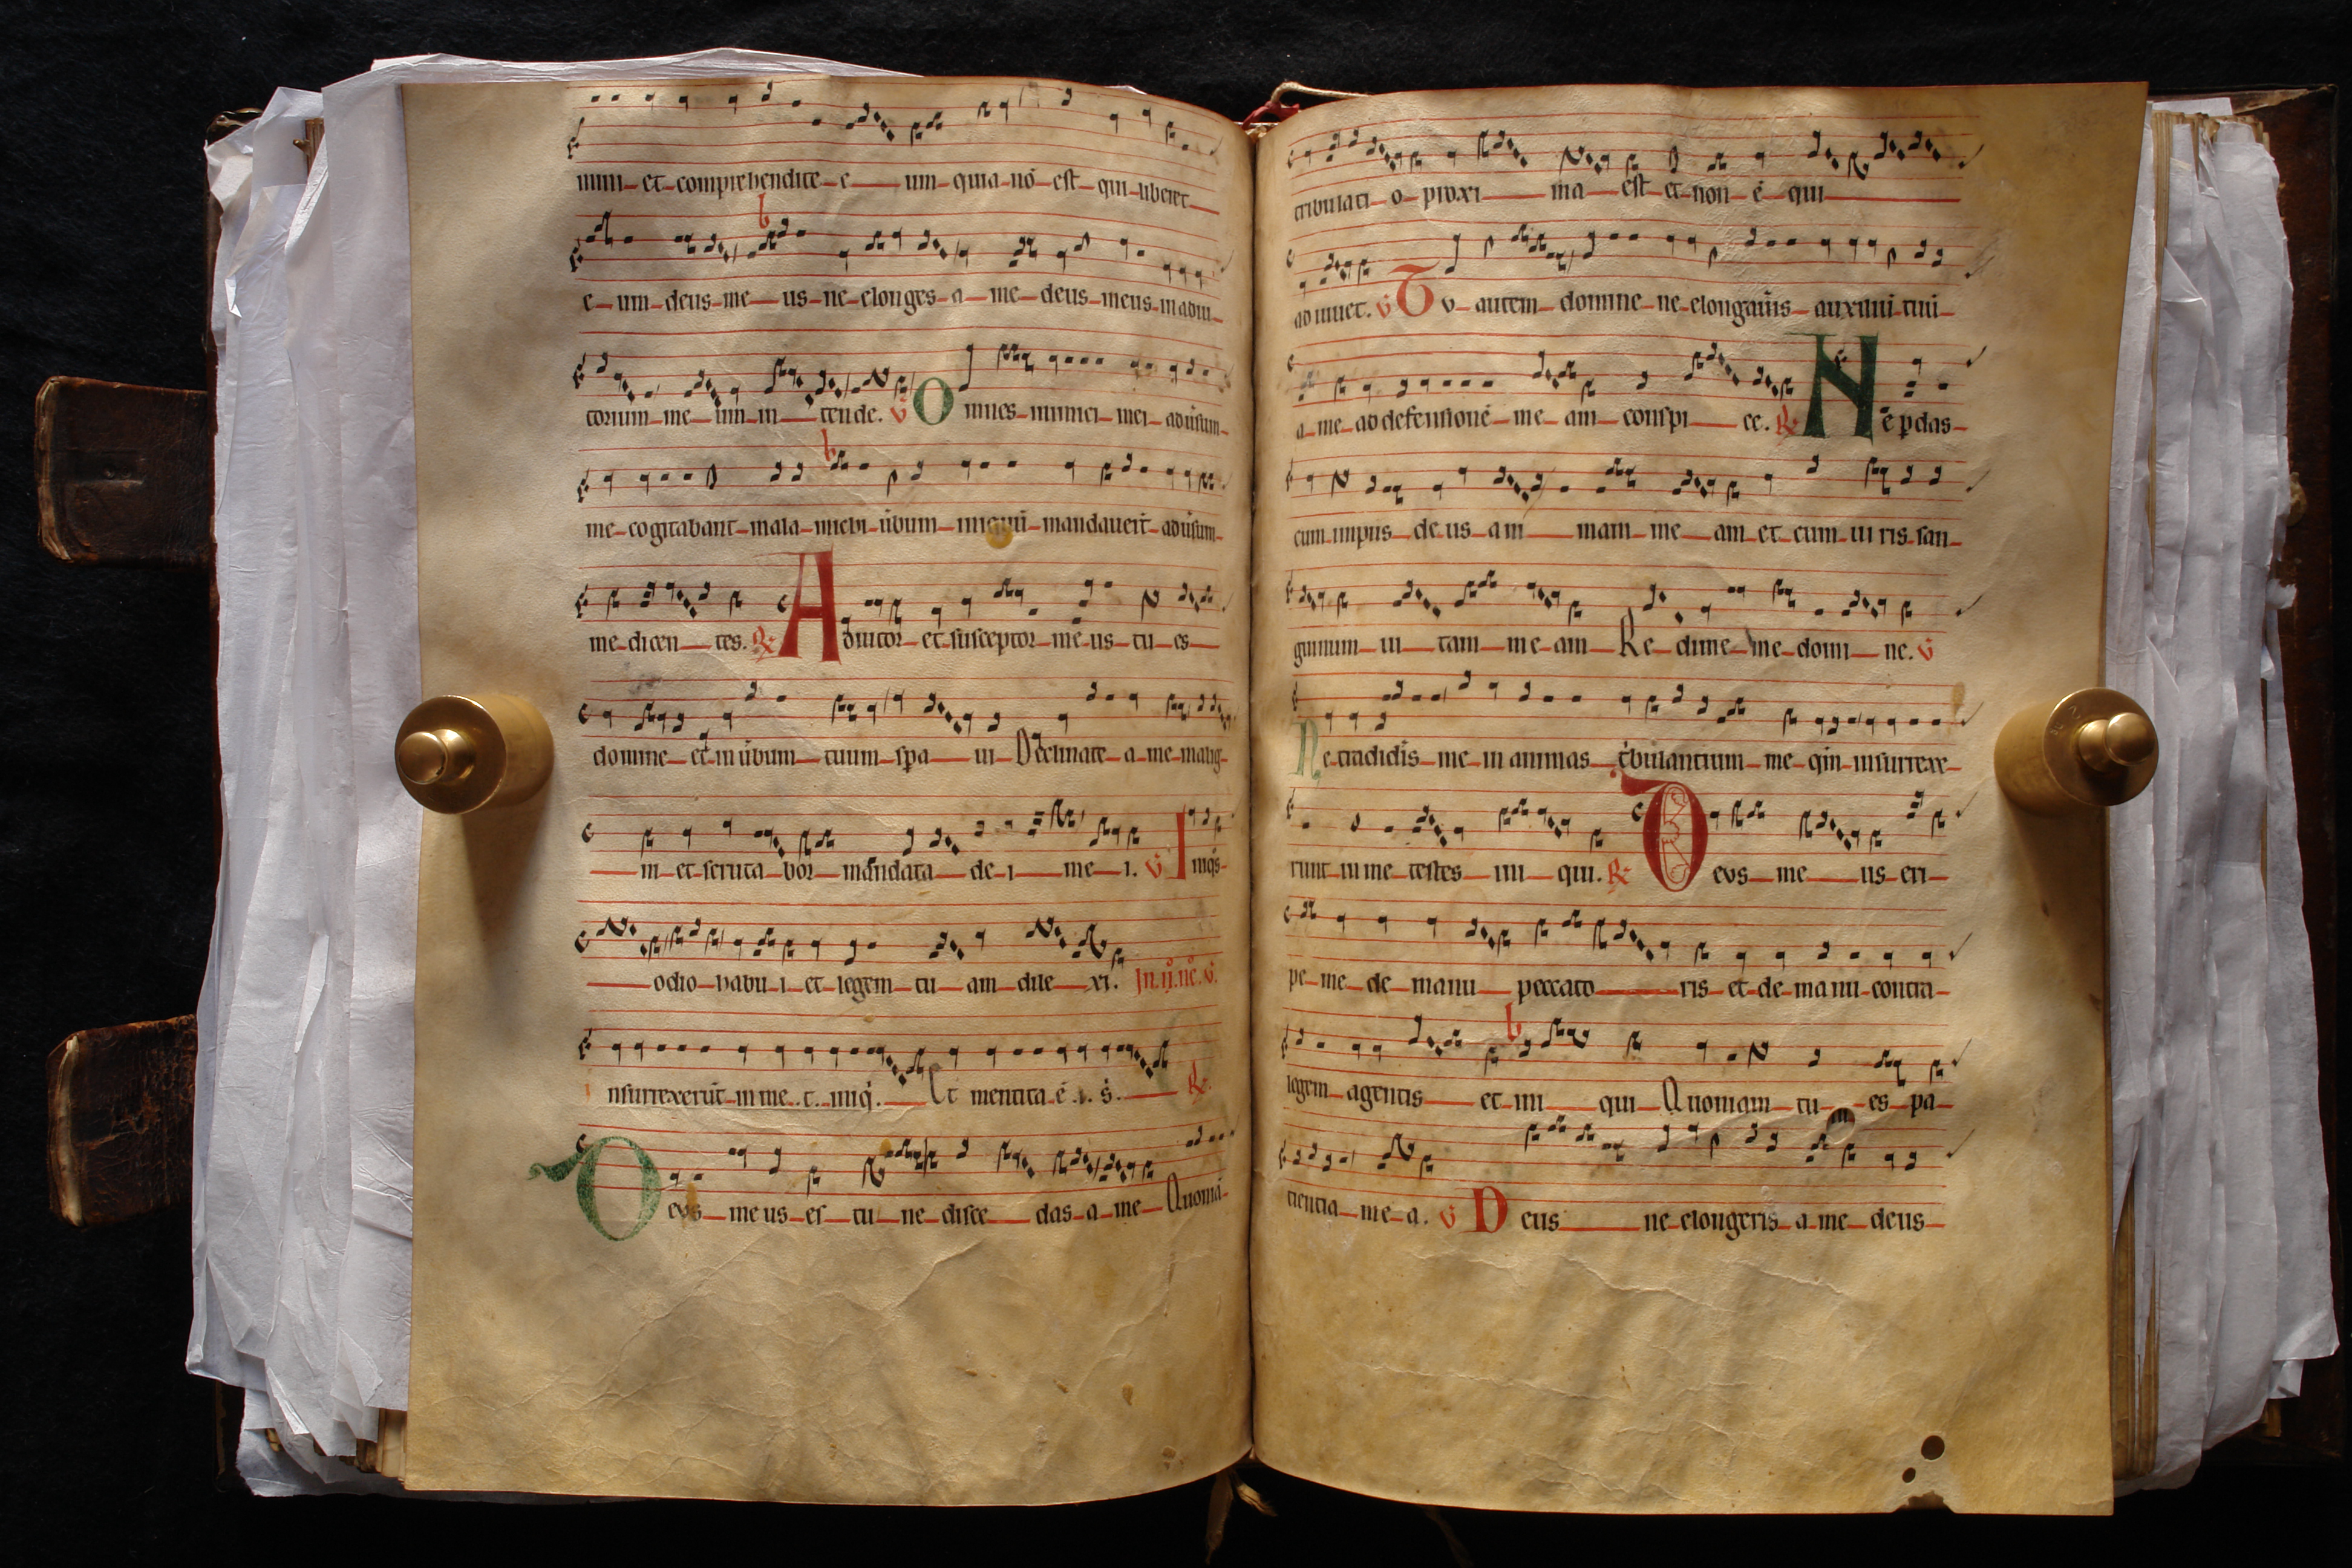 mini et comprehendite e um quia nō est qui liberet
e um deus me us ne elonges a me deus meus in adiu
torium me um in tende. v̄ Omnes inimici mei adūsum
me cogitabant mala michi ūbum iniquū mandauert̄ adūsum
me dicen tes. R̄ Adiutor et susceptor me us tu es
domine et in ūbum tuum spa ui Declinate a me malig
ni et scruta bor mandata de i me i. v̄ Iniqͦs
odio habu i et legem tu am dile xi. In .ij. nͦc. v̄.
Insurrexerūt in me .t. iniq̄. Et mentita ē .i. s̄. R̄.
Deus me us es tu ne disce das a me Quoniā
tribulati o proxi ma est et non ē qui
ad iuuet. v̄ Tu autem domine ne elongaūis auxiliū tuū
a me ad defensionē me am conspi ce. R̄ Ne ꝑdas
cum impiis de us a ni mam me am et cum ui ris san
guinum ui tam me am Re dime me domi ne. v̄
Ne tradidīs me in animas t̄bulantium me qm̄ insurrexe
runt in me testes ini qui. R̄ Deus me us eri
pe me de manu peccato ris et de manu contra
legem agentis et ini qui Quoniam tu es pa
cientia me a. v̄ Deus ne elongeris a me deus